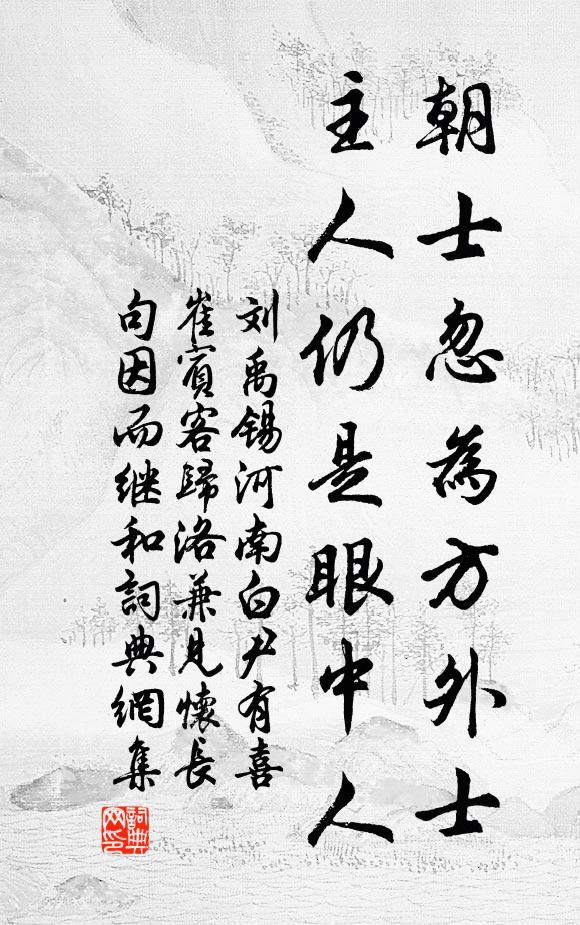 朝士忽為方外士
主人仍是眼中人
刘禹锡河南白尹有喜
崔賓客歸洛兼見懷長
句因而继和詞典網集
詞典
网印